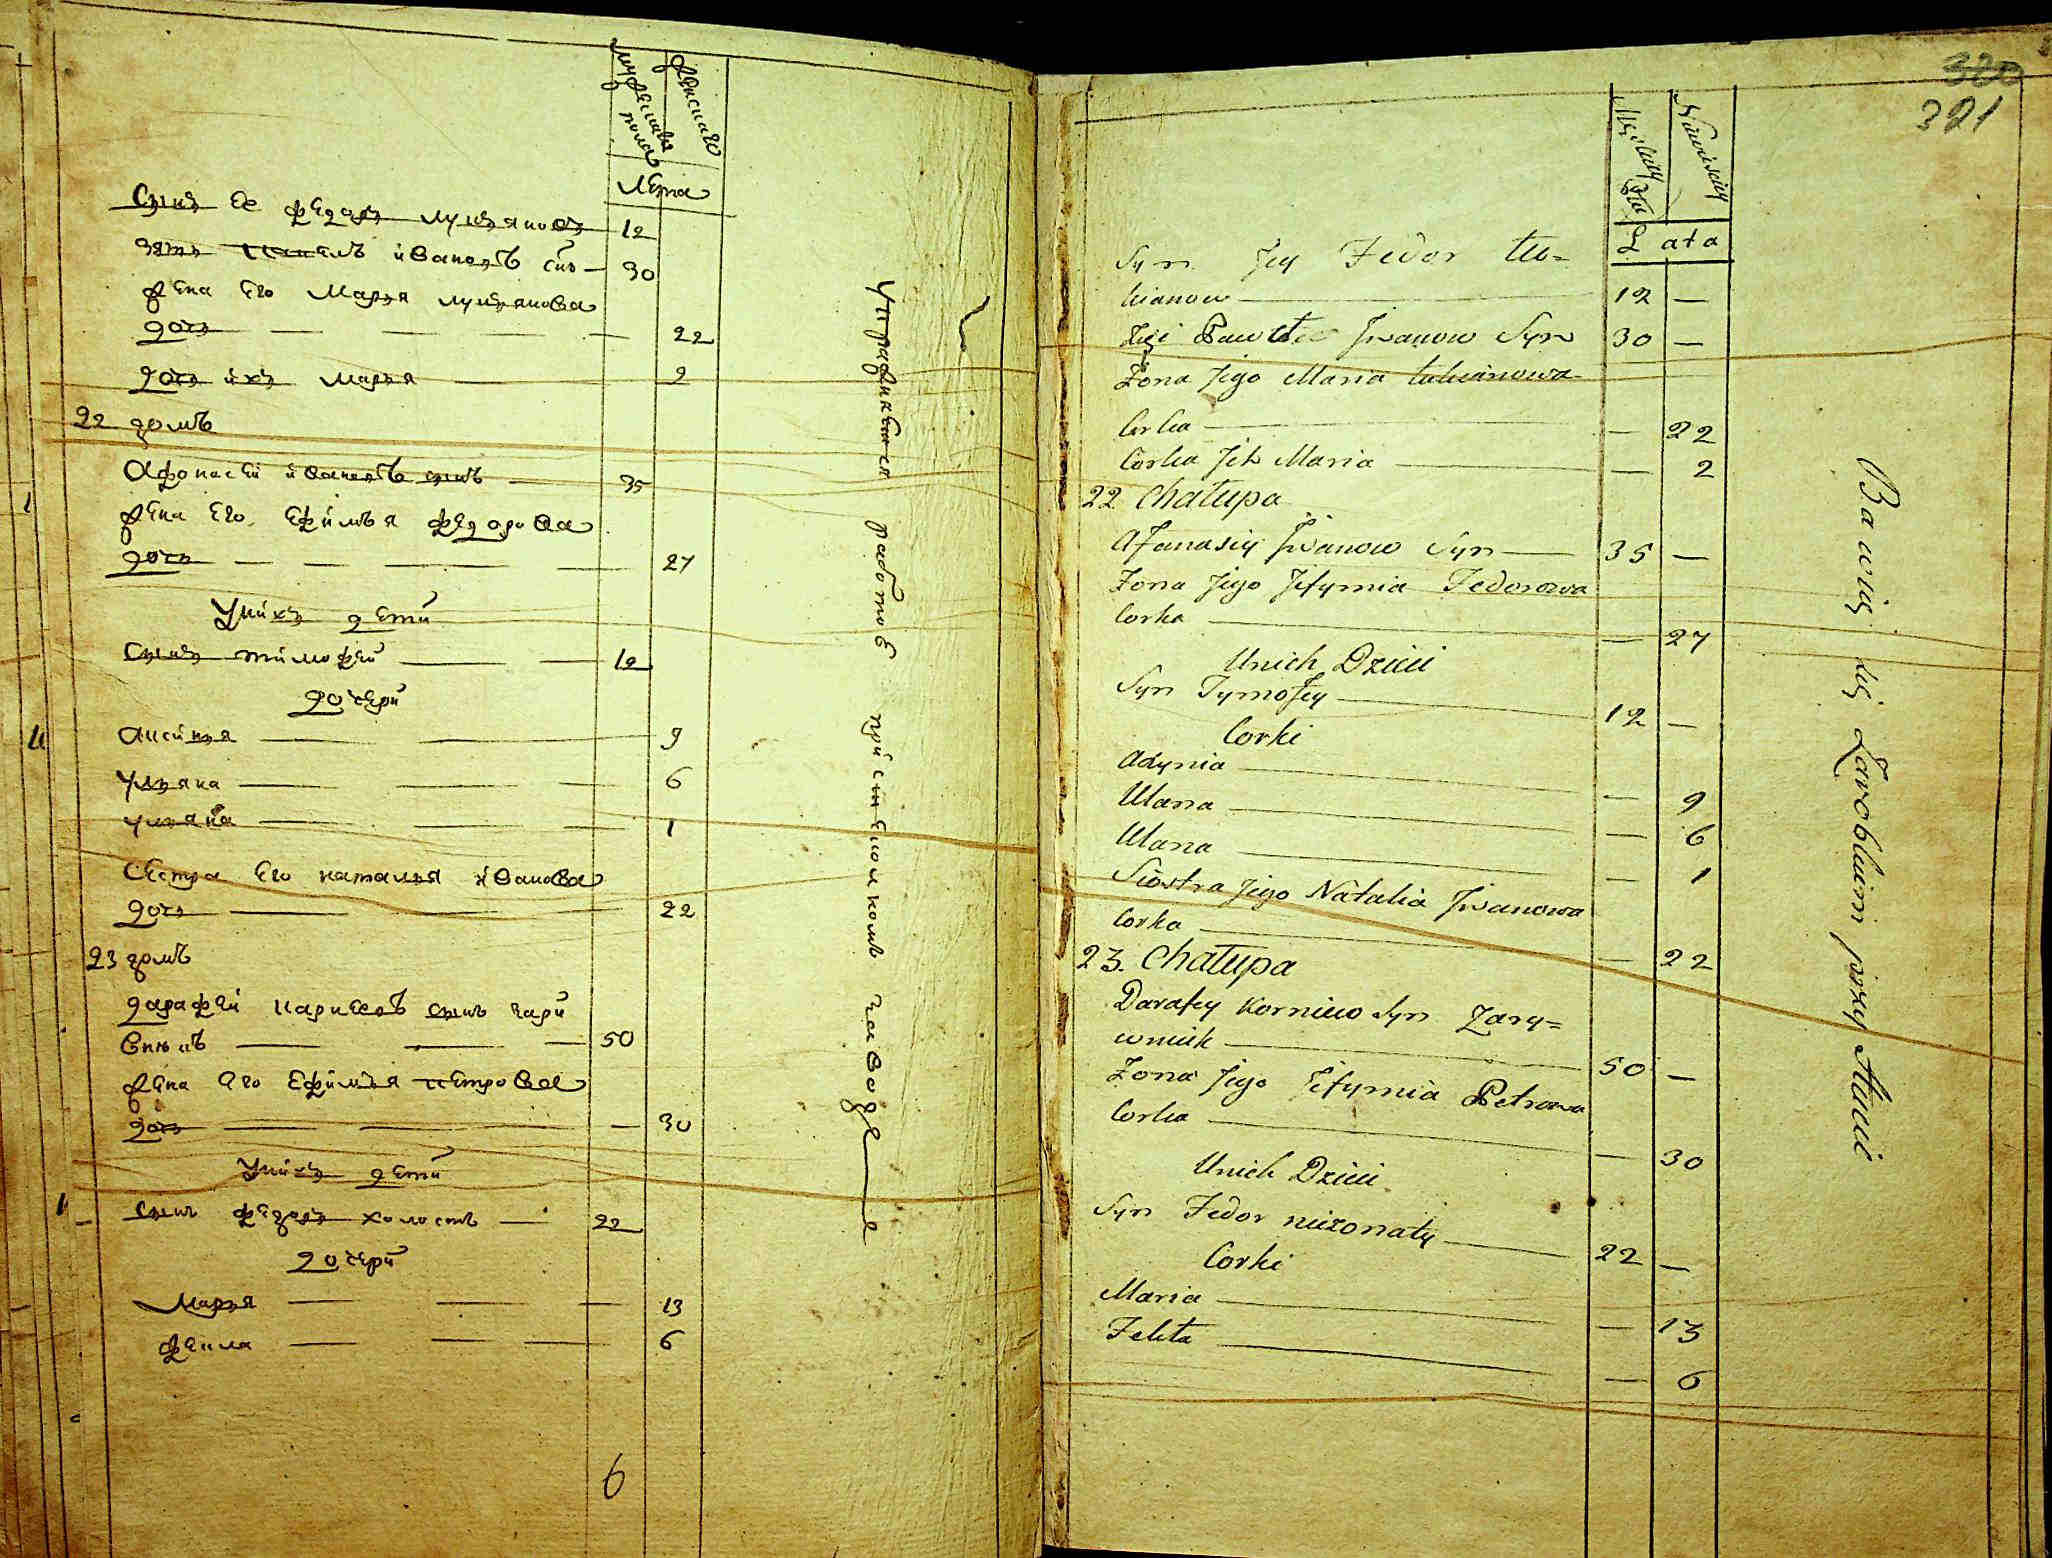 мужеска пола
женскаго
лета
Сынъ ее федоръ лукьяновъ 12
зять павелъ ивановъ сы– 30
жена его Марья лукьянова
дочь — — — — 22
дочь ихъ марья — 2
22 домъ
Афонасей ивановъ сынъ — 35
жена его ефимья федорова
дочь — — — — 27
Уних детй
Сынъ тимофей — — 12
дочерй
Аксинья — — 9
Ульяна — — — 6
ульяна — — — 1
Сестра его наталья иванова
дочь — — — 22
23 домъ
дарафей карнеевъ сынъ зары
внюкъ — — — 50
жена его Ефимья петрова
дочь — — — — 30
Унихъ детй
Сынъ федоръ холостъ — 22
дочерй
Марья — — — 13
фекла — — — 6
6
упражняются работою при
320
321
Lata
Syn Jey Fedor Łu=
kianow — 12 —
Zięć Paweł Jwanow Syn 30 —
Żona Jego Maria Łukianowa
Corka — — 22
Corka Jch Maria — — 2
22 Chałupa
Afanasiy Jwanow Syn — 35 —
Żona Jego Jefymia Fedorowa
Corka — — 27
Unich Dzieci
Syn Tymofey — 12 —
Corki
Axynia — — 9
Ulana — — 6
Ulana — — 1
Siostra Jego Natalia Jwanowa
Corka — — 22
23. Chałupa
Darafey Korniew Syn Zary=
wniuk — 50 —
Żona Jego Jefymia Petrowa
Corka — — 30
Unich Dzieci
Syn Fedor nieżonaty — 22 —
Corki
Maria — — 13
Fekła — — 6
Bawią się Zarobkiem przy